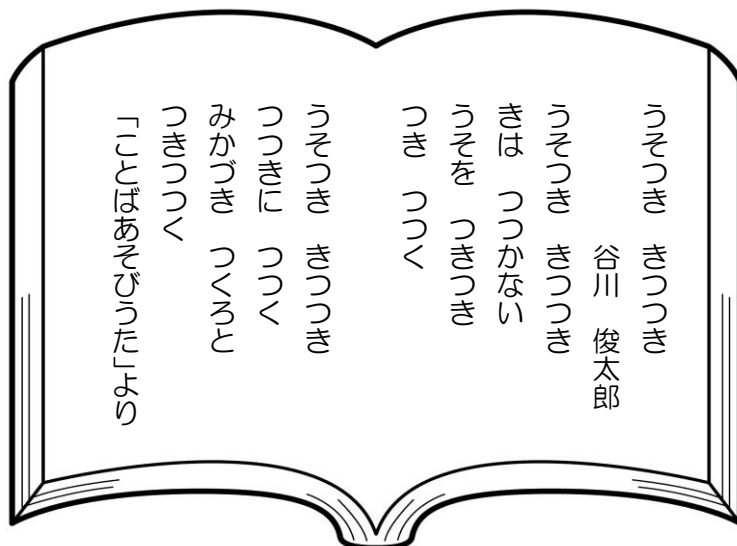 うそつき　きつつき
谷川　俊太郎
うそつき　きつつき
きは　つつかない
うそを　つきつき
つき　つつく
うそつき　きつつき
つつきに　つつく
みかづき　つくろと
つきつつく
「ことばあそびうた」より